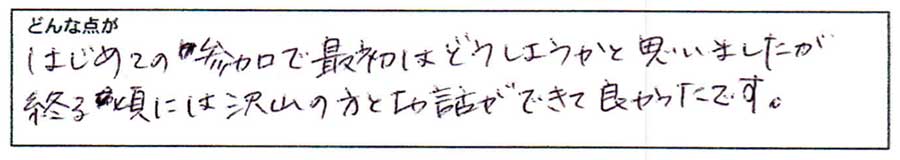 どんな点が
はじめての参加で最初はどうしようかと思いましたが
終る頃には沢山の方とお話ができて良かったです。